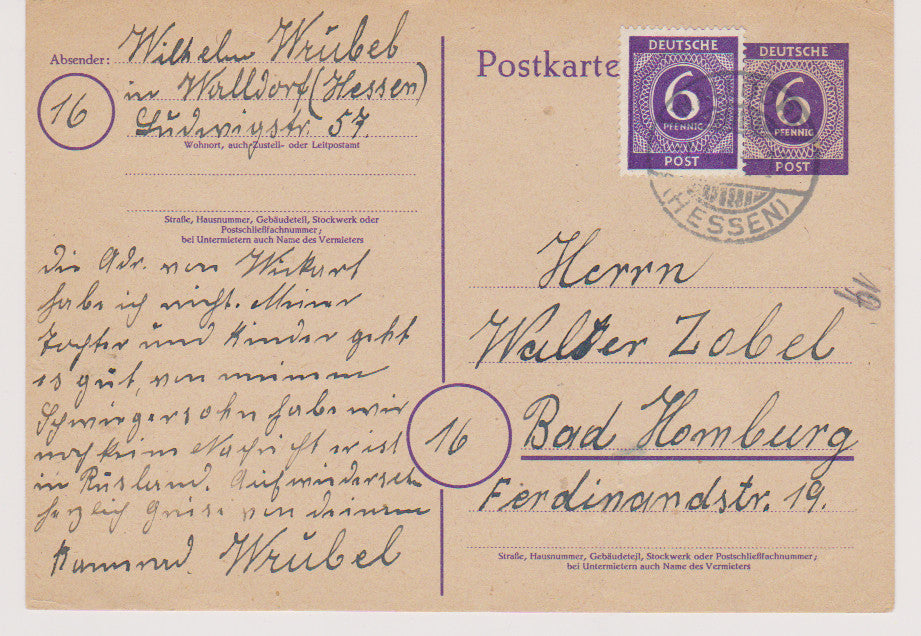 Absender: Wilhelm Wrubel
in Walldorf (Hessen)
16
Ludwigstr. 57.
Wohnort, auch Zustell- oder Leitpostamt
Straße, Hausnummer, Gebäudeteil, Stockwerk oder
Postschließfachnummer;
bei Untermietern auch Name des Vermieters
die Adr. von Wickart
habe ich nicht. Meiner
Tochter und Kinder geht
es gut, von meinem
Schwiegersohn habe wir
noch keine Nachricht er ist
in Rusland. Aufwiedersehn
herzlich Grüse von deinem
Kamerad Wrubel
Postkarte
DEUTSCHE
6
PFENNIG
POST
DEUTSCHE
6
PFENNIG
POST
(HESSEN)
Herrn
Walter Zobel
16
Bad Homburg
Ferdinandstr. 19.
Straße, Hausnummer, Gebäudeteil, Stockwerk oder Postschließfachnummer;
bei Untermietern auch Name des Vermieters